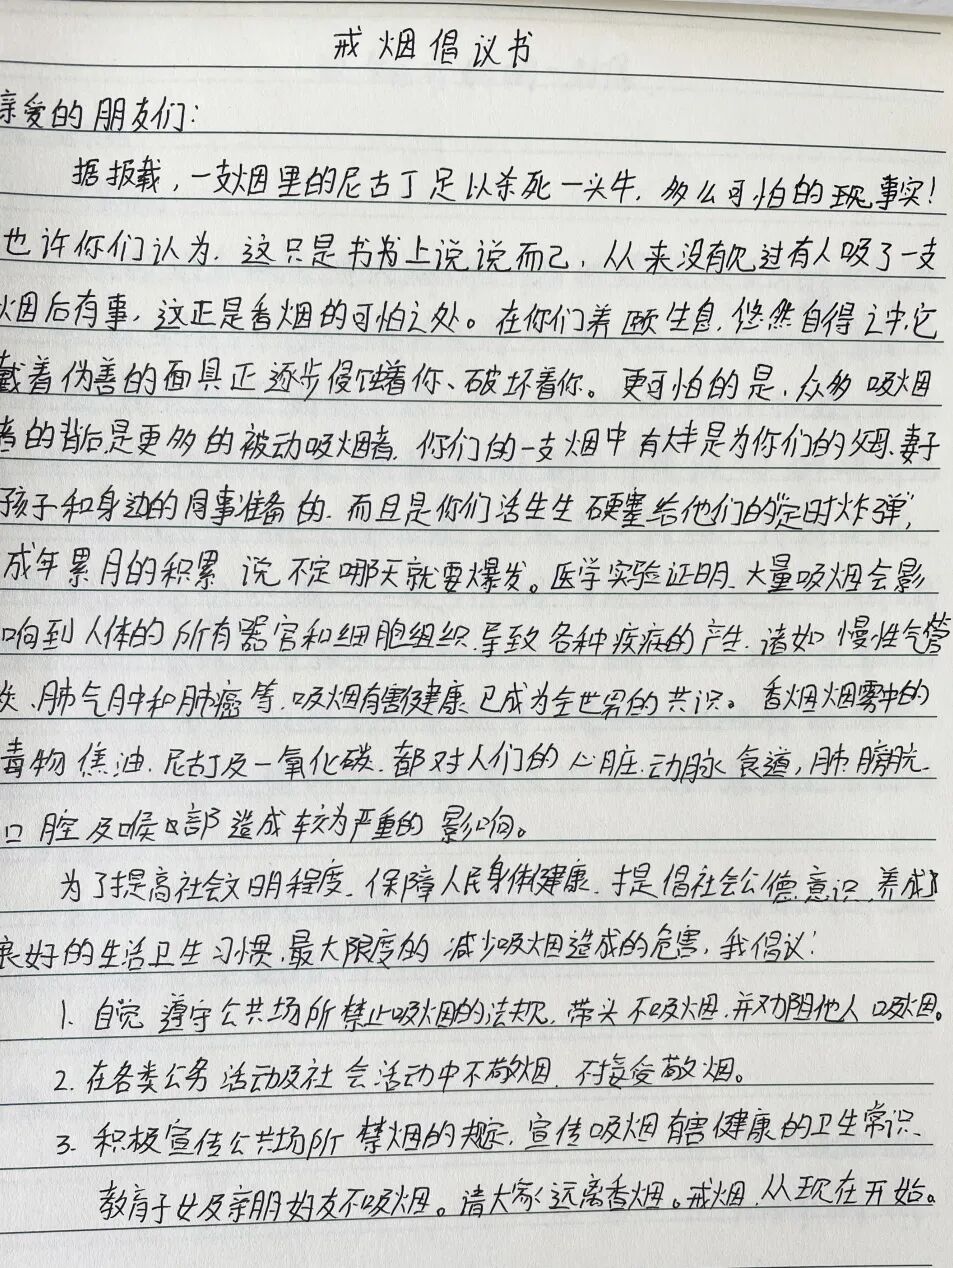 戒烟倡议书
亲爱的朋友们:
据报载,一支烟里的尼古丁足以杀死一头牛,多么可怕的现事实!
也许你们认为,这只是书书上说说而已,从来没有见过有人吸了一支
烟后有事,这正是香烟的可怕之处。在你们养颐生息,悠然自得之中,它
戴着伪善的面具正逐步侵蚀着你、破坏着你。更可怕的是,众多吸烟
者的背后是更多的被动吸烟者,你们的一支烟中有大半是为你们的父母、妻子
孩子和身边的同事准备的,而且是你们活生生硬塞给他们的“定时炸弹”,
成年累月的积累说不定哪天就要爆发。医学实验证明,大量吸烟会影
响到人体的所有器官和细胞组织,导致各种疾病的产生,诸如慢性气管
炎、肺气肿和肺癌等,吸烟有害健康已成为全世界的共识。香烟烟雾中的
毒物焦油、尼古丁及一氧化碳,都对人们的心脏、动脉、食道,肺、膀胱、
口腔及喉部造成较为严重的影响。
为了提高社会文明程度,保障人民身体健康,提倡社会公德意识,养成
良好的生活卫生习惯,最大限度的减少吸烟造成的危害,我倡议:
1. 自觉遵守公共场所禁止吸烟的法规,带头不吸烟,并劝阻他人吸烟。
2. 在各类公务活动及社会活动中不敬烟,不接受敬烟。
3. 积极宣传公共场所禁烟的规定,宣传吸烟有害健康的卫生常识、
教育子女及亲朋好友不吸烟。请大家远离香烟。戒烟,从现在开始。